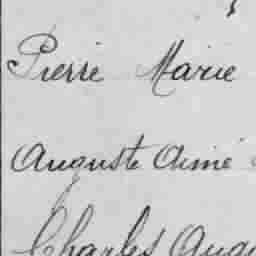 Pierre Marie
Auguste Aimé
Charles Aug